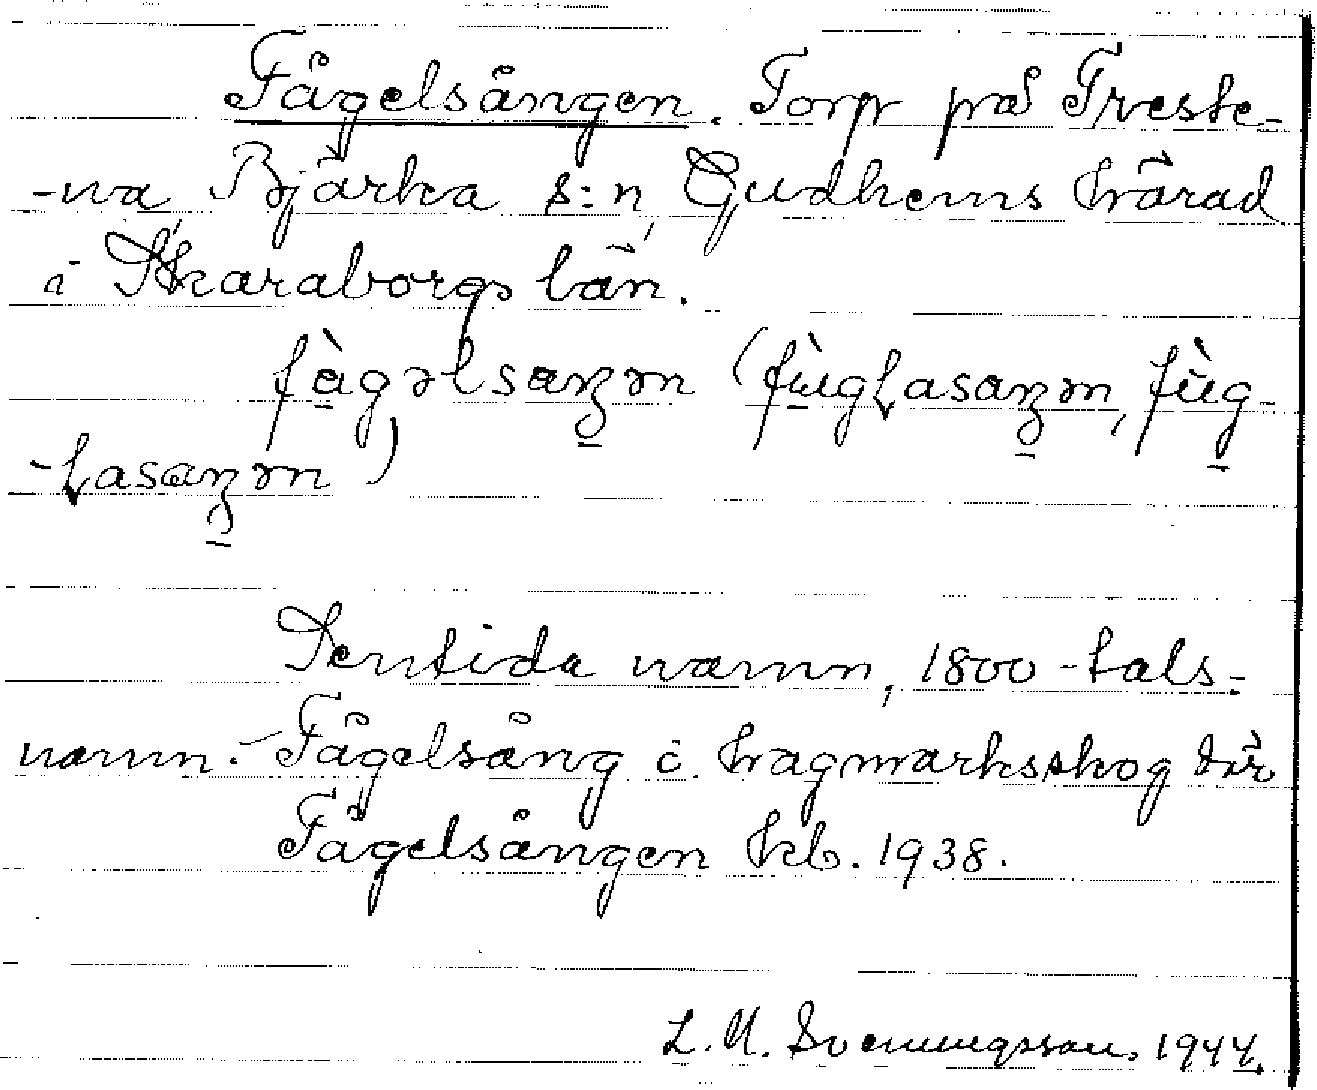 Fågelsången. Torp på Freste-
-na Bjärka s:n, Gudhems härad
i Skaraborgs län.
fàgəlsaŋən (fùgɭasaŋən, fùg-
-ɭasaŋən)
Sentida namn, 1800-tals-
namn. Fågelsång i hagmarksskog där
Fågelsången kb. 1938.
L. M. Svenungsson. 1944.